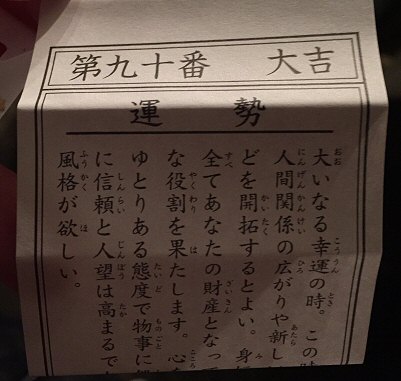 第九十番 大吉
運勢
大いなる幸運の時。この時
人間関係の広がりや新し
どを開拓するとよい。身に
全てあなたの財産となって
な役割を果たします。心を
ゆとりある態度で物事に
に信頼と人望は高まるで
風格が欲しい。